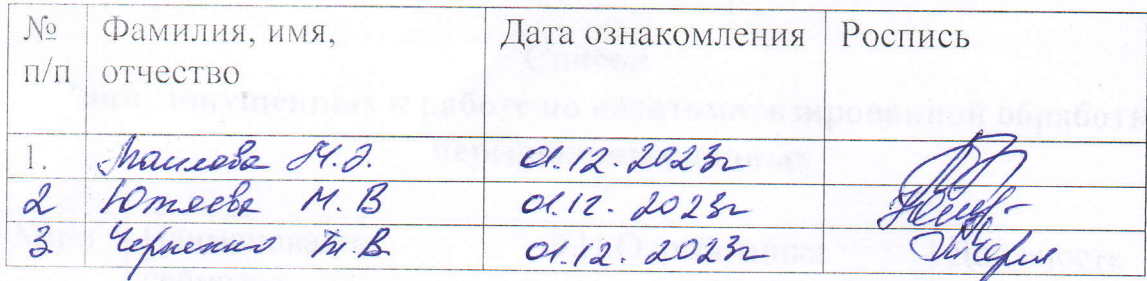 № п/п Фамилия, имя, отчество Дата ознакомления Роспись
1. М.Э. 01.12.2023г
2 Ютяева М.В 01.12.2023г
3 Черненко Т.В. 01.12.2023г